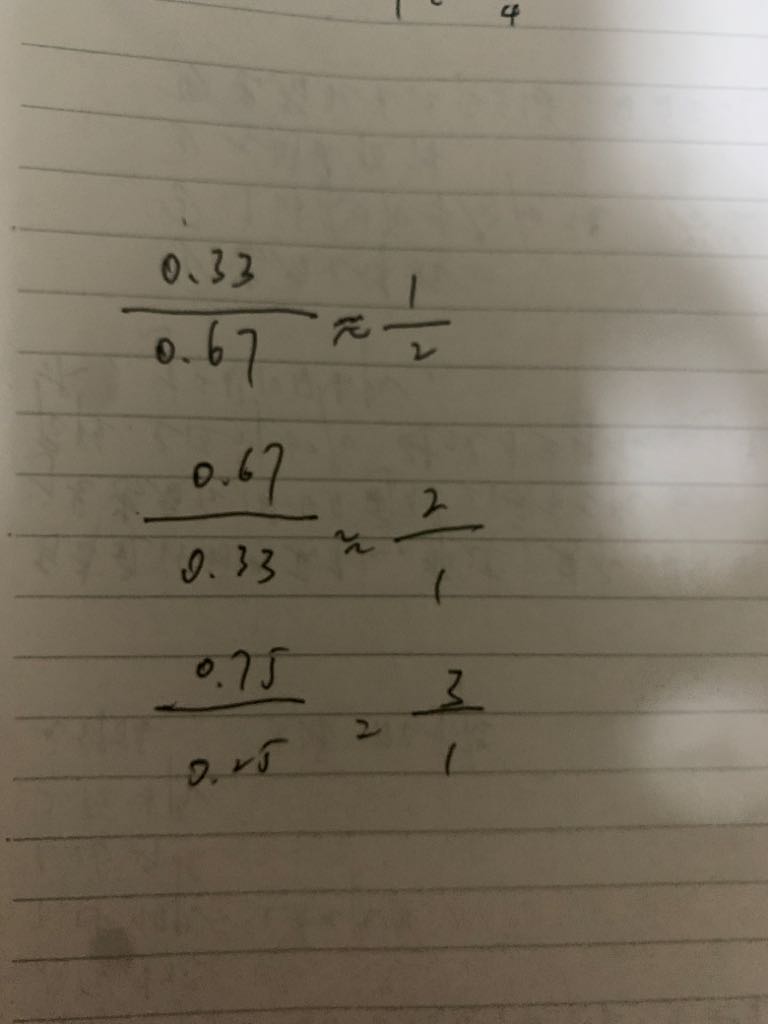 4
0.33 / 0.67 ≈ 1 / 2
0.67 / 0.33 ≈ 2 / 1
0.75 / 0.25 = 3 / 1